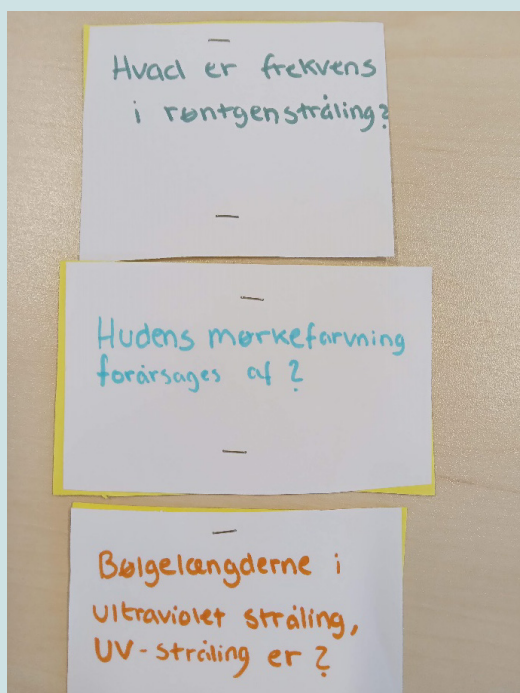 Hvad er frekvens
i røntgenstråling?
Hudens mørkefarvning
forårsages af ?
Bølgelængderne i
ultraviolet stråling,
UV-stråling er ?